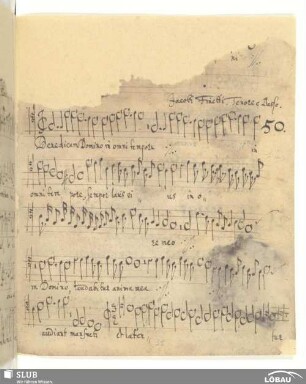 Jacobi Finetti. Tenor e Basso.
50.
Benedicam Domino in omni tempore in
omni tempore, semper laus ei us in o
re meo
in Domino, laudabitur anima mea
audiant mansueti et læten tur
SLUB
Wir führen Wissen.
LÖBAU